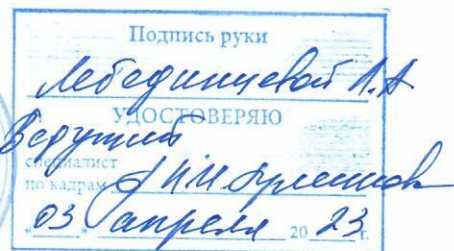 Подпись руки
Лебединцевой Л.А
УДОСТОВЕРЯЮ
Ведущий
специалист
по кадрам
"03" апреля 20 23 г.